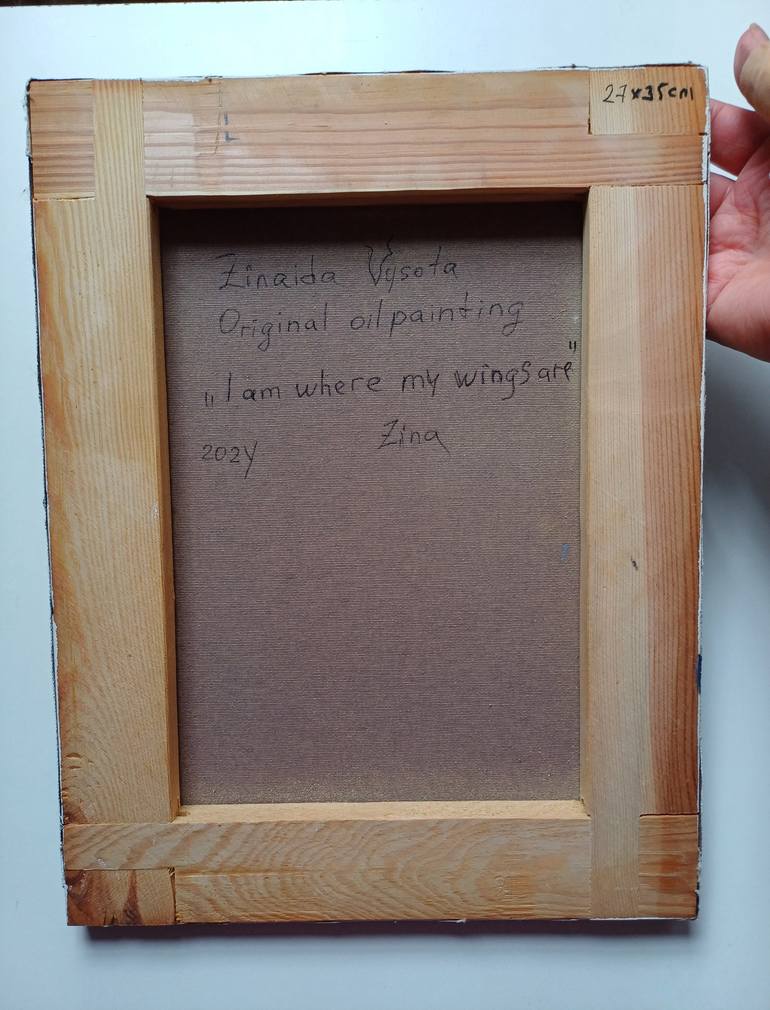 27x35cm
Zinaida Vysota
Original oil painting
„I am where my wings are"
2024 Zina